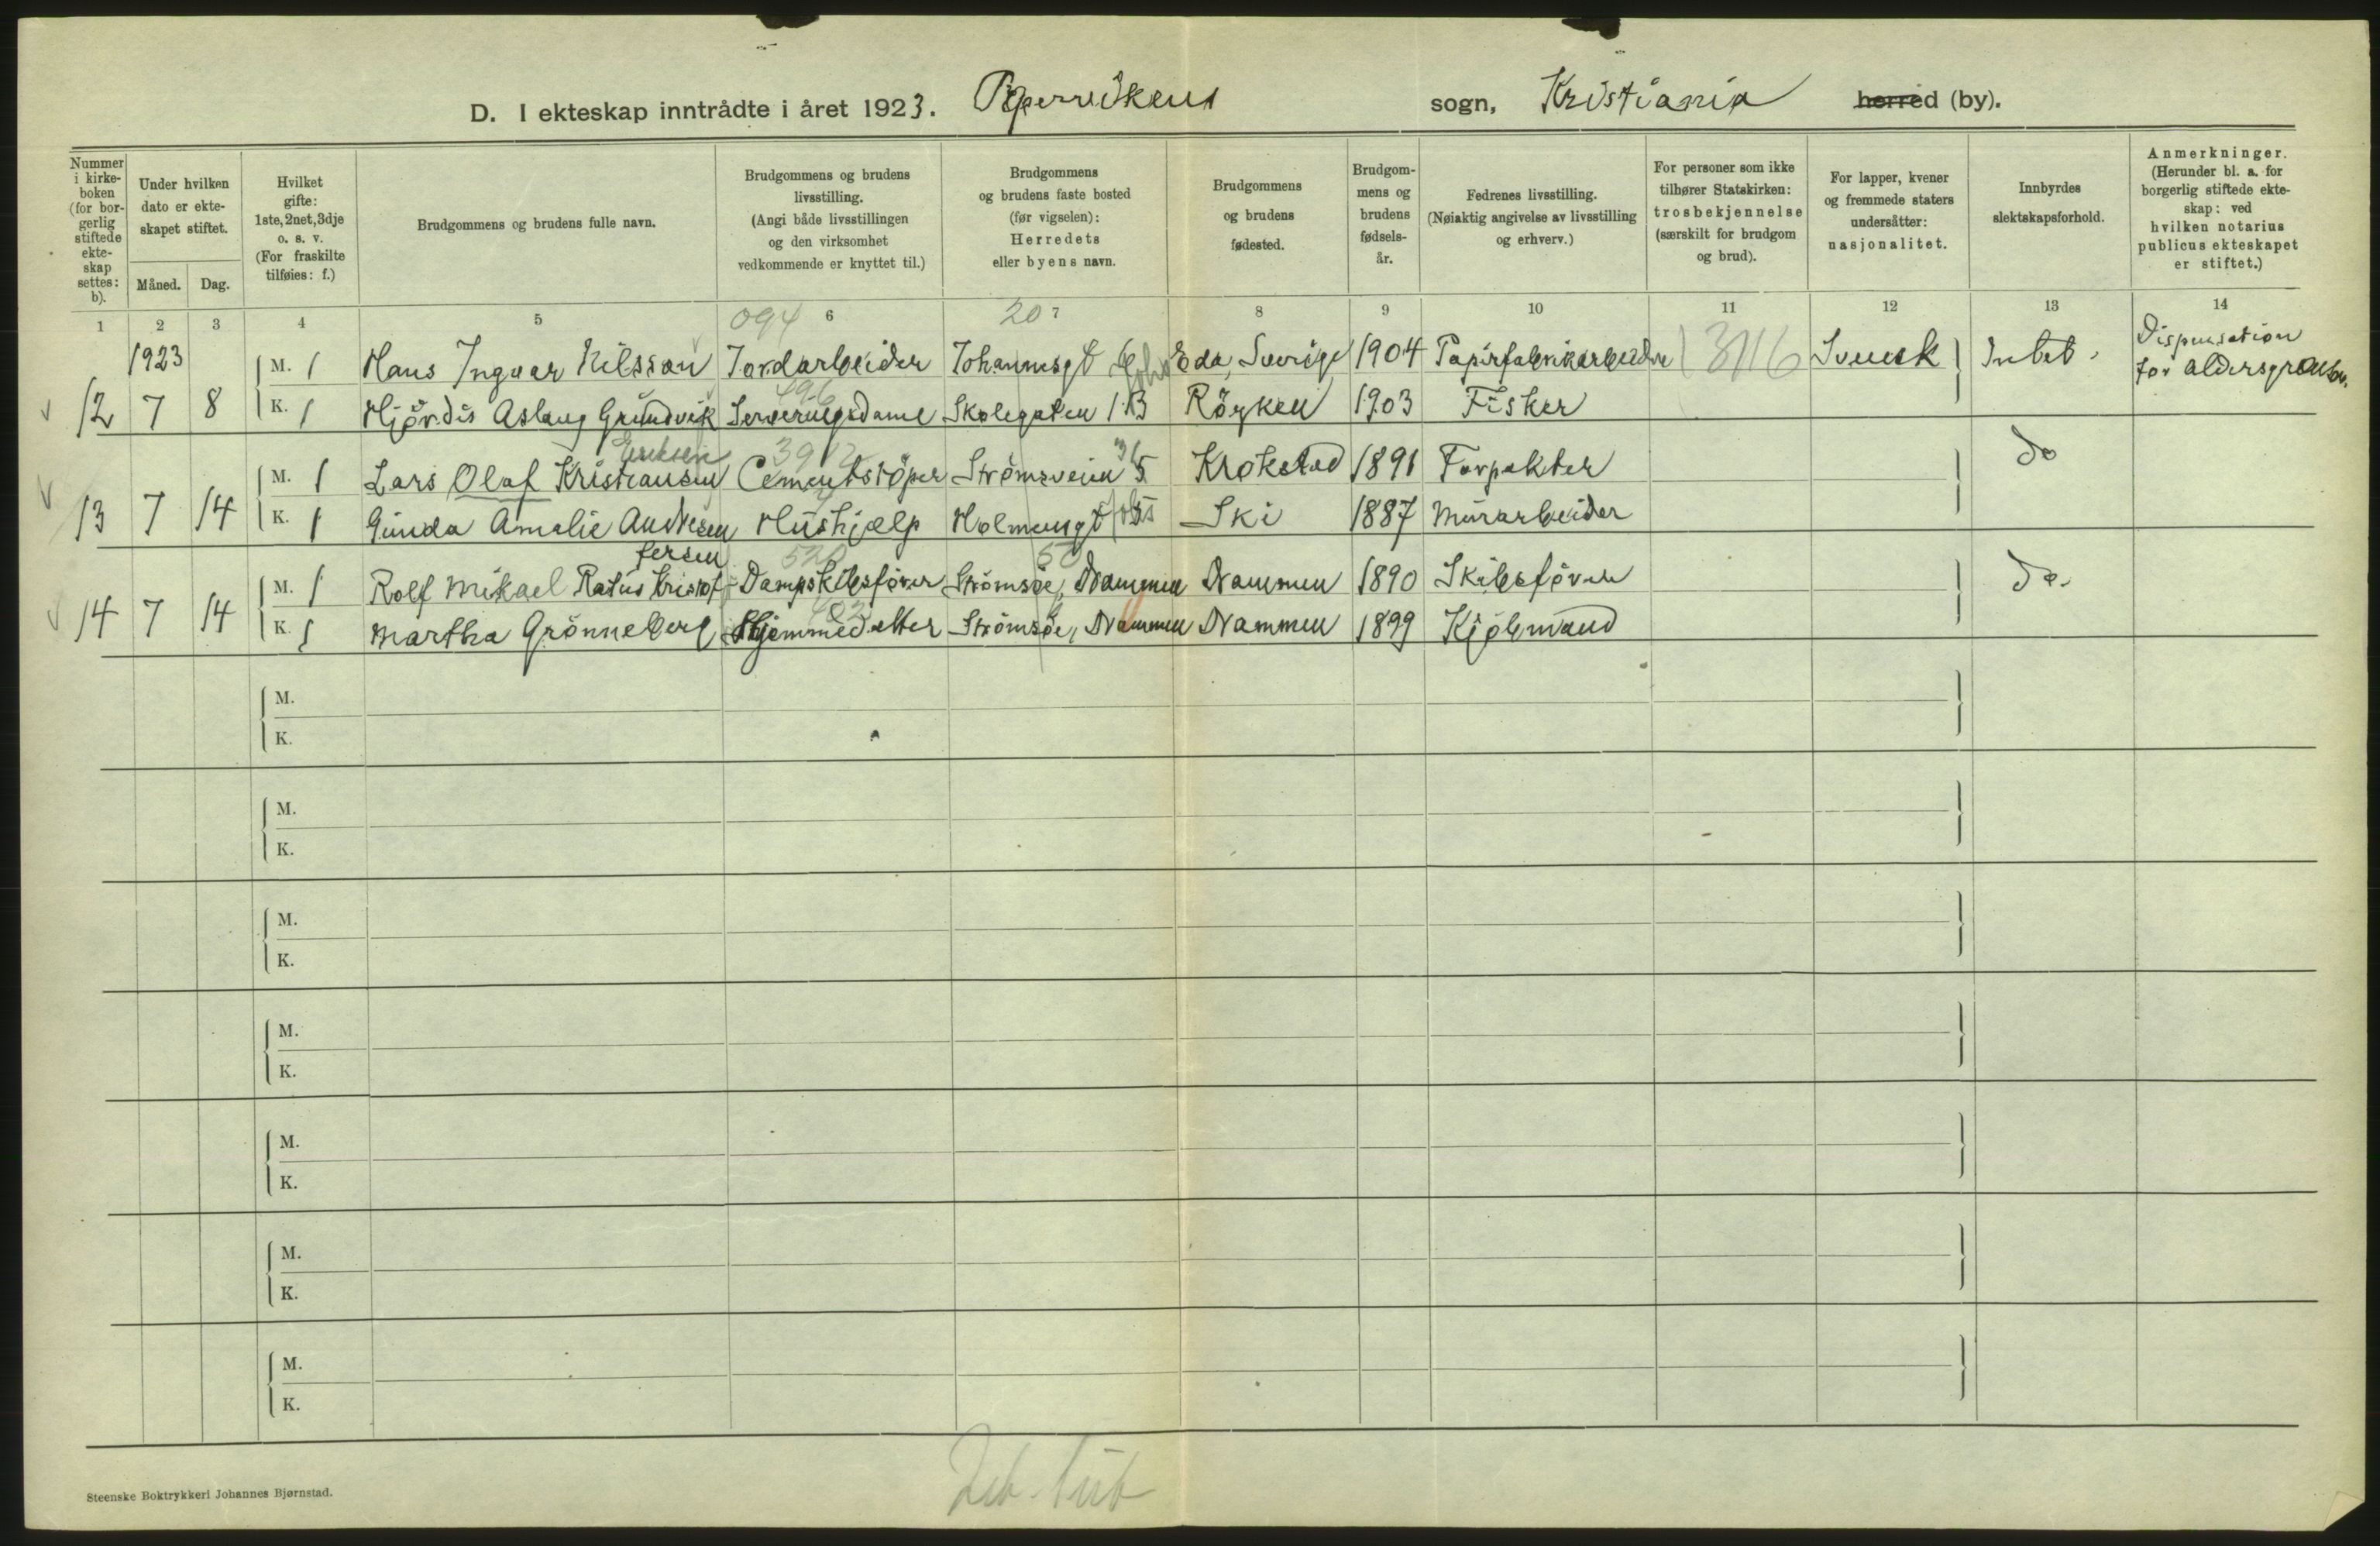 D. I ekteskap inntrådte i året 1923. Pipervikens sogn, Kristiania herred (by).
Nummer i kirke-boken (for bor-gerlig stiftede ekte-skap settes: b).
Under hvilken dato er ekte-skapet stiftet.
Måned. Dag.
Hvilket gifte: 1ste, 2net, 3dje o. s. v. (For fraskilte tilføies: f.)
Brudgommens og brudens fulle navn.
Brudgommens og brudens livsstilling. (Angi både livsstillingen og den virksomhet vedkommende er knyttet til.)
Brudgommens og brudens faste bosted (før vigselen): Herredets eller byens navn.
Brudgommens og brudens fødested.
Brudgom-mens og brudens fødsels-år.
Fedrenes livsstilling. (Nøiaktig angivelse av livsstilling og erhverv.)
For personer som ikke tilhører Statskirken: trosbekjennelse (særskilt for brudgom og brud).
For lapper, kvener og fremmede staters undersåtter: nasjonalitet.
Innbyrdes slektskapsforhold.
Anmerkninger. (Herunder bl. a. for borgerlig stiftede ekte-skap: ved hvilken notarius publicus ekteskapet er stiftet.)
1 2 3 4 5 6 7 8 9 10 11 12 13 14
094 20
1923
M. 1 Hans Ingvar Nilsson Jordarbeider Johannesgt Eda, Sverige 1904 Papirfabrikarbeider 3116 Svensk Intet. Dispensation for aldersgrænsen.
496
12 7 8 K. 1 Hjördis Aslaug Grundvik Serveringsdame Skolegaten 1B Röyken 1903 Fisker
Eriksen 3912
M. 1 Lars Olaf Kristiansen Cementstöper Strömsveien 36 Krokstad 1891 Forpakter do
13 7 14 K. 1 Gunda Amalie Andresen Hushjælp Holmensgt Ski 1887 Murarbeider
fersen 520 50
M. 1 Rolf Mikael Ratus Kristof- Dampskibsförer Strömsöe, Drammen Drammen 1890 Skibsförer do.
14 7 14 K. 1 Martha Grönneberg Hjemmedatter Strömsöe, Drammen Drammen 1899 Kjöbmand
M.
K.
M.
K.
M.
K.
M.
K.
M.
K.
M.
K.
M.
K.
Steenske Boktrykkeri Johannes Bjørnstad.